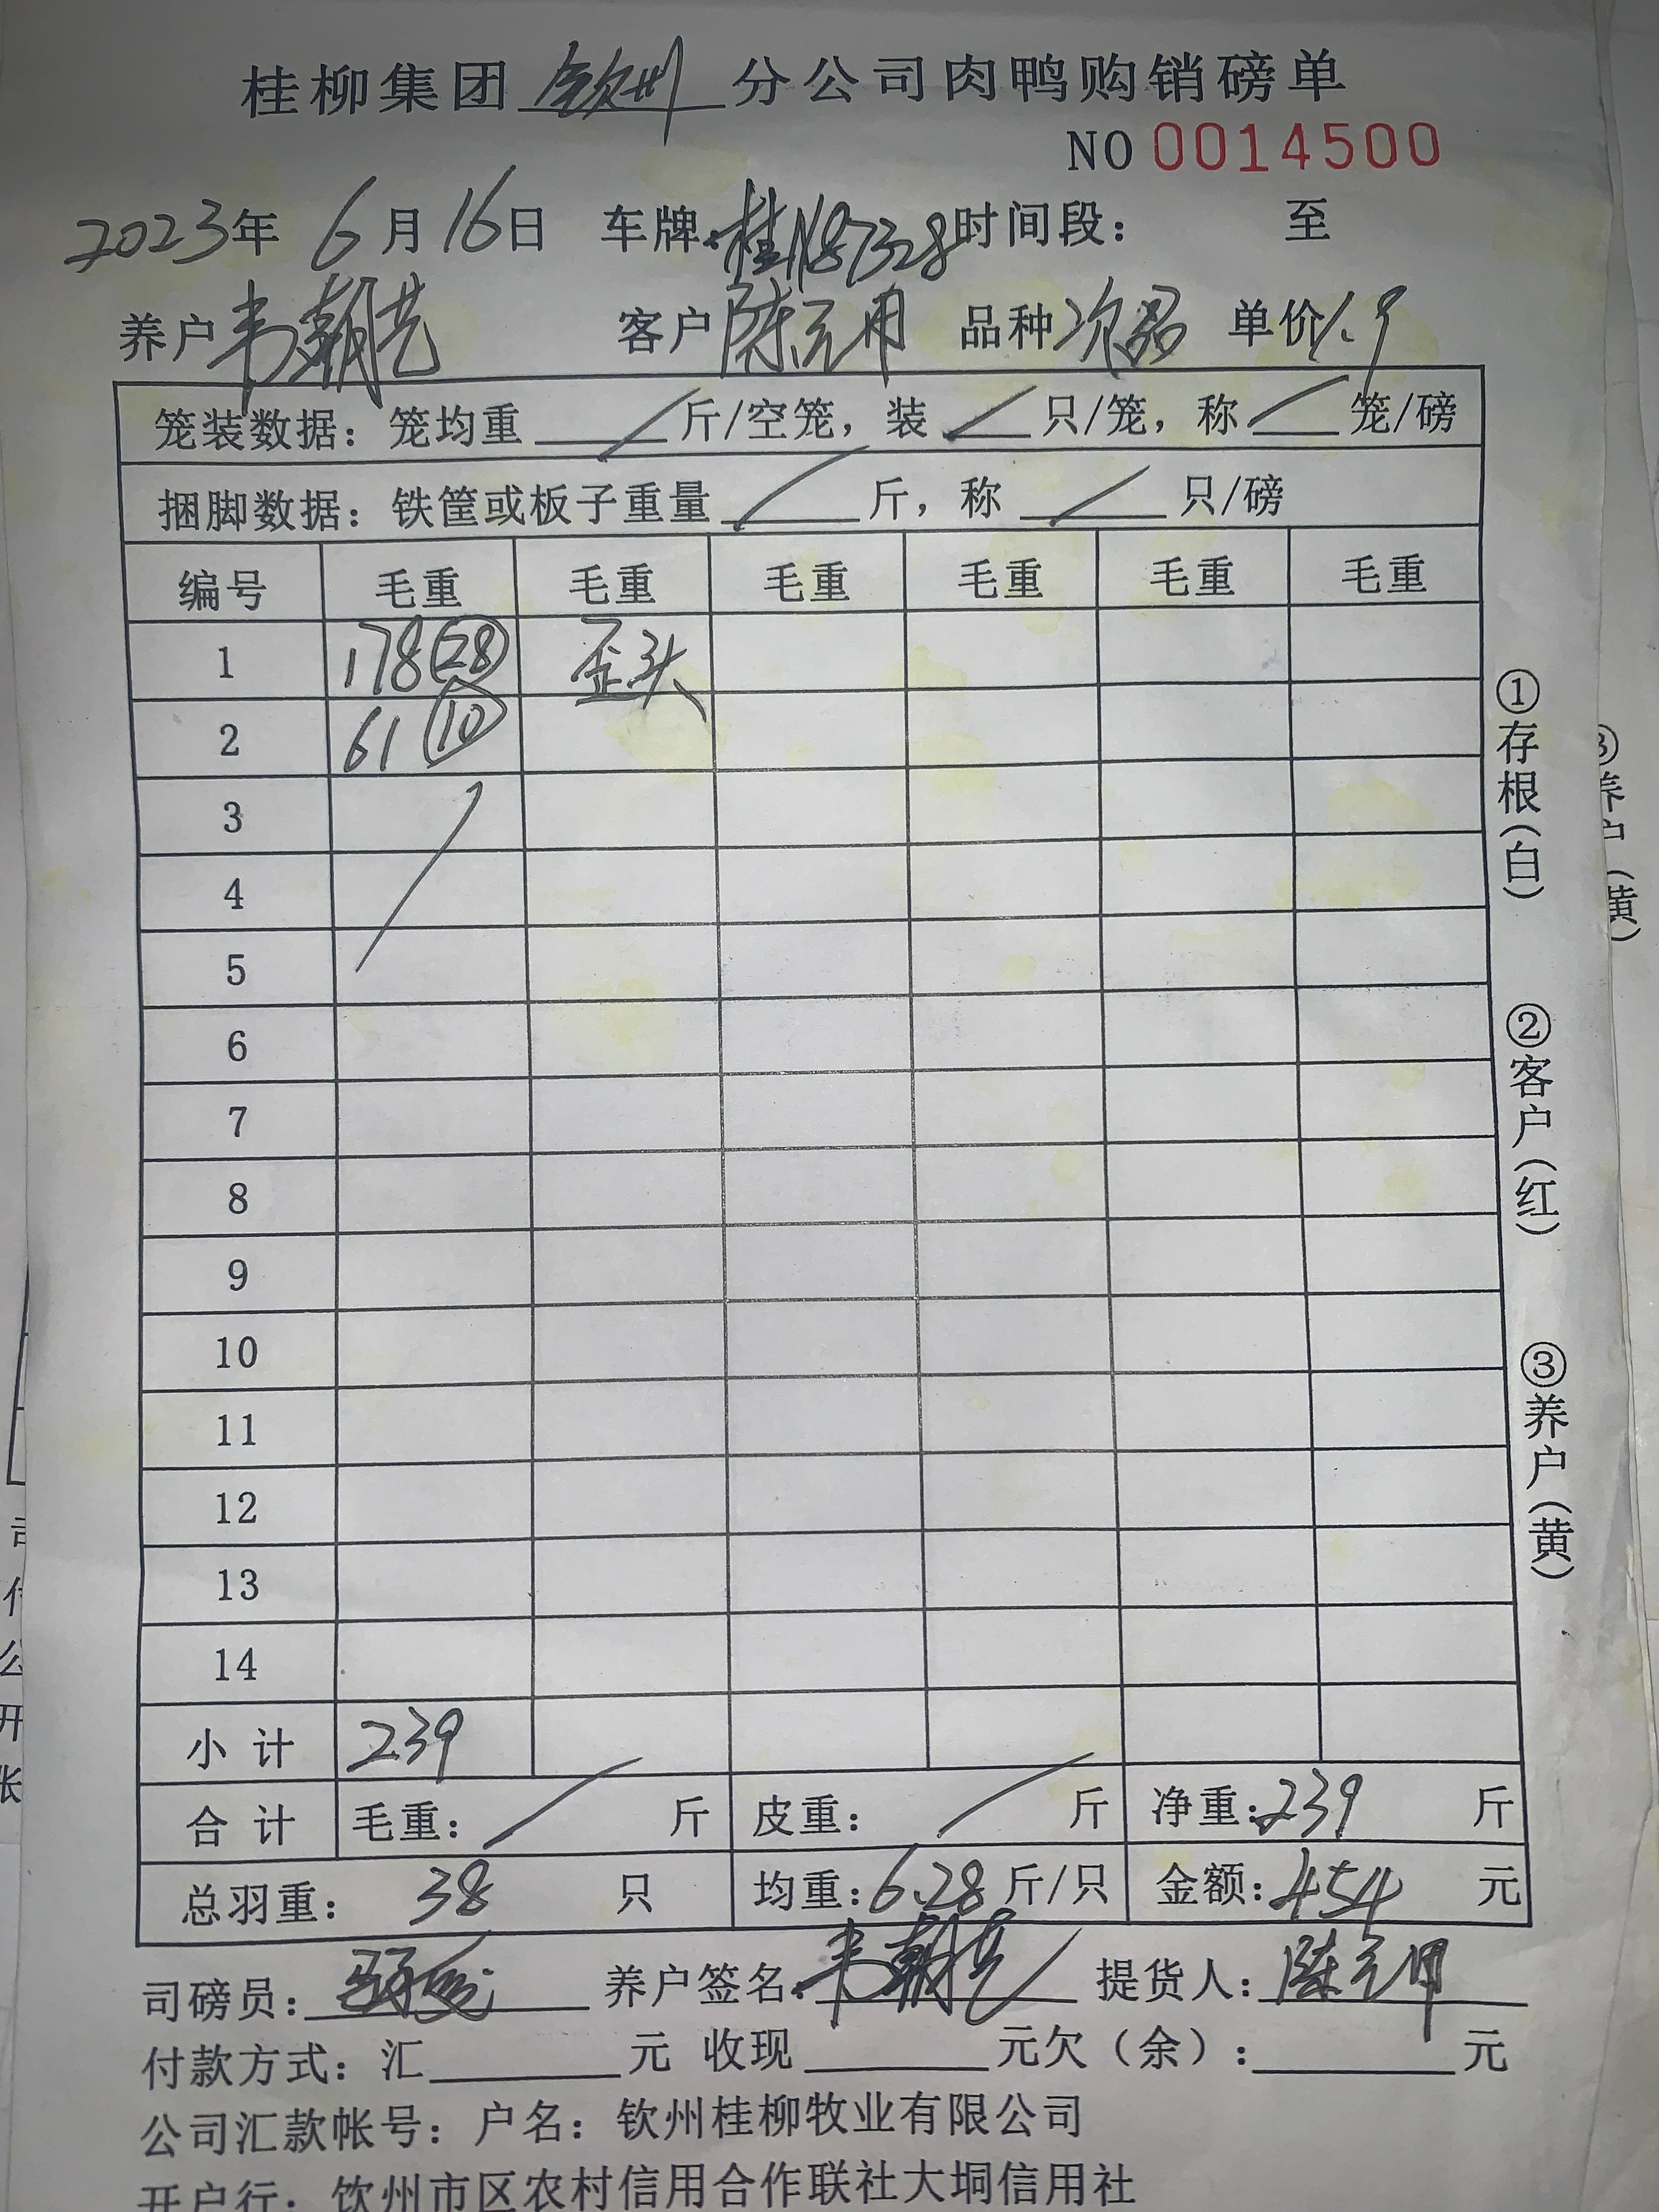 桂柳集团 钦州 分公司肉鸭购销磅单
NO 0014500
2023年 6月 16日 车牌:桂N87328时间段: 至
养户 韦朝艺 客户 陈元用 品种 次品 单价 1.9
笼装数据:笼均重 / 斤/空笼,装 / 只/笼,称 / 笼/磅
捆脚数据:铁筐或板子重量 / 斤,称 / 只/磅
编号 毛重 毛重 毛重 毛重 毛重 毛重
1 178(28) 歪头
2 61(10)
3
4
5
6
7
8
9
10
11
12
13
14
小计 239
合计 毛重: / 斤 皮重: / 斤 净重:239 斤
总羽重: 38 只 均重:6.28 斤/只 金额:454 元
司磅员: 养户签名:韦朝艺 提货人:陈元用
付款方式:汇 元 收现 元欠(余): 元
公司汇款帐号:户名:钦州桂柳牧业有限公司
开户行:钦州市区农村信用合作联社大垌信用社
①存根(白) ②客户(红) ③养户(黄)
③养户(黄)